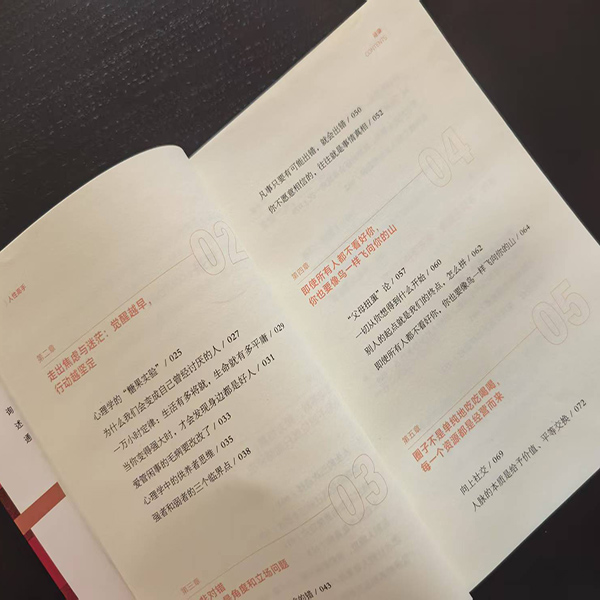 人性高手
02
第二章
走出焦虑与迷茫：觉醒越早，
行动越坚定
心理学的“糖果实验” / 025
为什么我们会变成自己曾经讨厌的人 / 027
一万小时定律：生活有多将就，生命就有多平庸 / 029
当你变得强大时，才会发现身边都是好人 / 031
爱管闲事的毛病要改改了 / 033
心理学中的供养者思维 / 035
强者和弱者的三个临界点 / 038
03
第三章
是角度和立场问题
043
询
述
通
目录
CONTENTS
凡事只要有可能出错，就会出错 / 050
你不愿意相信的，往往就是事情真相 / 052
04
第四章
即使所有人都不看好你，
你也要像鸟一样飞向你的山
“父母扭重”论 / 057
一切从你想得到什么开始 / 060
别人的起点就是我们的终点，怎么拼 / 062
即使所有人都不看好你，你也要像鸟一样飞向你的山 / 064
05
第五章
圈子不是单纯地吃吃喝喝，
每一个资源都是经营而来
向上社交 / 069
人脉的本质是给予价值、平等交换 / 072